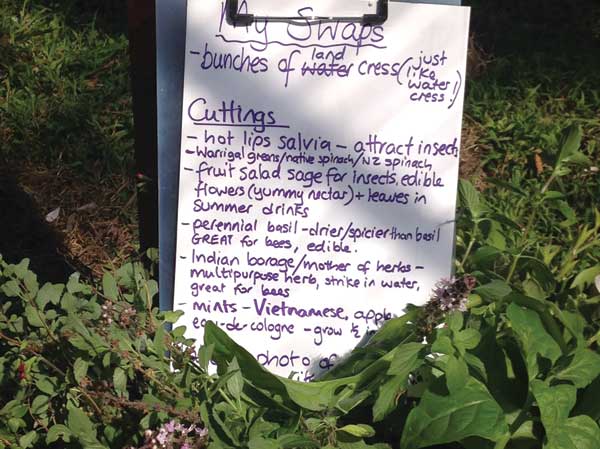 My Swaps
- bunches of land cress (just like water cress!)
Cuttings
- hot lips salvia - attract insects
- Warrigal greens/native spinach/NZ spinach
- fruit salad sage for insects, edible
flowers (yummy nectar) + leaves in
Summer drinks
- perennial basil - drier/spicier than basil
GREAT for bees, edible.
- Indian borage/mother of herbs -
multipurpose herb, strike in water,
great for bees
- mints - Vietnamese, apple
eau-de-cologne - grow ½
photo of